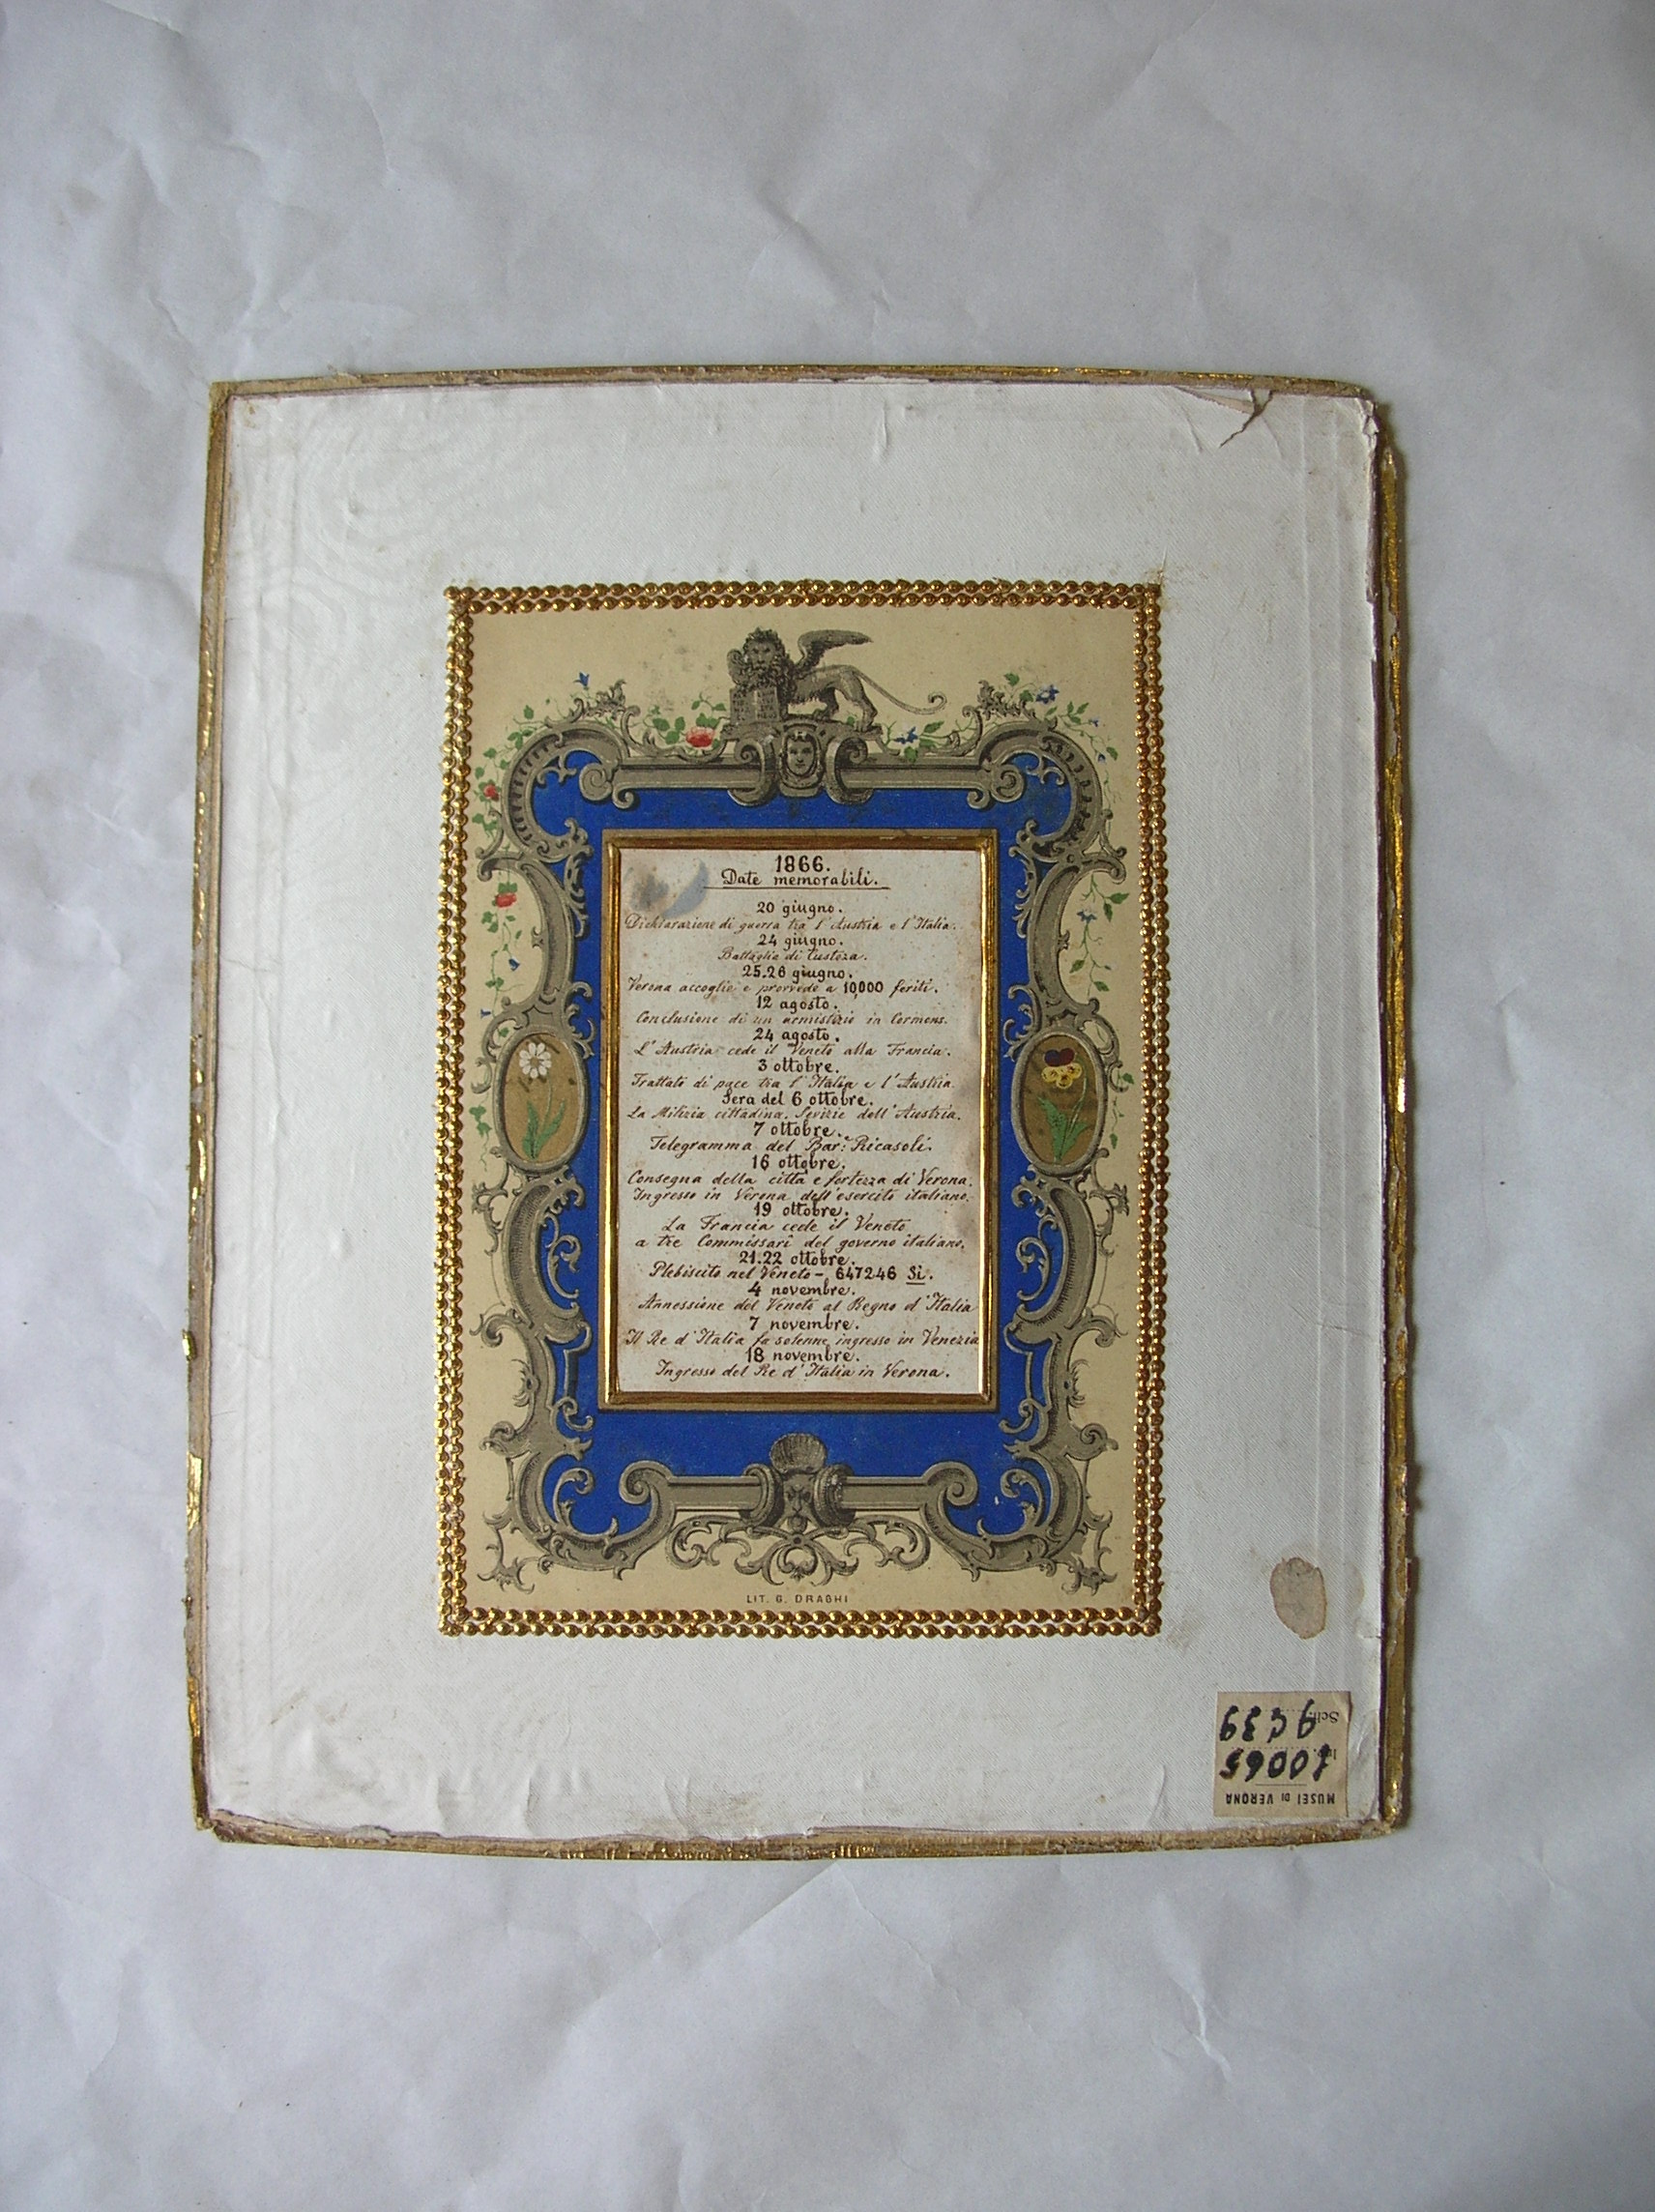 1866.
Date memorabili.
20 giugno.
Dichiarazione di guerra tra l'Austria e l'Italia.
24 giugno.
Battaglia di Custoza.
25.26 giugno.
Verona accoglie e provvede a 10,000 feriti.
12 agosto.
Conclusione di un armistizio in Cormons.
24 agosto.
L'Austria cede il Veneto alla Francia.
3 ottobre.
Trattato di pace tra l'Italia e l'Austria.
Sera del 6 ottobre.
La Milizia cittadina. Sevizie dell'Austria.
7 ottobre.
Telegramma del Bar.e Ricasoli.
16 ottobre.
Consegna della città e fortezza di Verona.
Ingresso in Verona dell'esercito italiano.
19 ottobre.
La Francia cede il Veneto
a tre Commissari del governo italiano.
21.22 ottobre.
Plebiscito nel Veneto - 647246 Sì.
4 novembre.
Annessione del Veneto al Regno d'Italia
7 novembre.
Il Re d'Italia fa solenne ingresso in Venezia
18 novembre.
Ingresso del Re d'Italia in Verona.
LIT. G. DRAGHI
MUSEI DI VERONA
Inv. 10065
Sch. 9C39